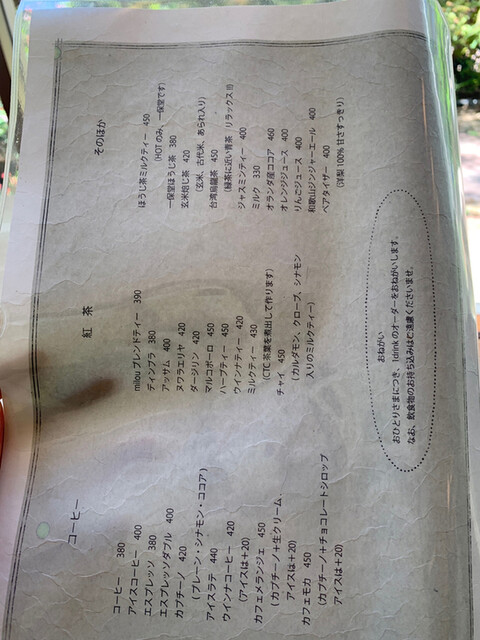 コーヒー
コーヒー 380
アイスコーヒー 400
エスプレッソ 380
エスプレッソダブル 400
カプチーノ 420
(プレーン・シナモン・ココア)
アイスラテ 440
ウインナコーヒー 420
(アイスは+20)
カフェメランジェ 450
(カプチーノ+生クリーム、
アイスは+20)
カフェモカ 450
(カプチーノ+チョコレートシロップ
アイスは+20)
紅茶
milouブレンドティー 390
ディンブラ 380
アッサム 400
ヌワラエリヤ 420
ダージリン 420
マルコポーロ 450
ハーブティー 450
ウインナティー 420
ミルクティー 430
(CTC茶葉を煮出して作ります)
チャイ 450
(カルダモン、クローブ、シナモン
入りのミルクティー)
そのほか
ほうじ茶ミルクティー 450
(HOTのみ、一保堂です)
一保堂ほうじ茶 380
玄米焙じ茶 420
(玄米、古代米、あられ入り)
台湾烏龍茶 450
(緑茶に近い青茶 リラックス
ジャスミンティー 400
ミルク 330
オランダ産ココア 460
オレンジジュース 400
りんごジュース 400
和歌山ジンジャーエール 400
ペアタイザー 400
(洋梨100% 甘さすっきり)
おねがい
おひとりさまにつき、1drinkのオーダーをおねがいします。
なお、飲食物のお持ち込みはご遠慮くださいませ。